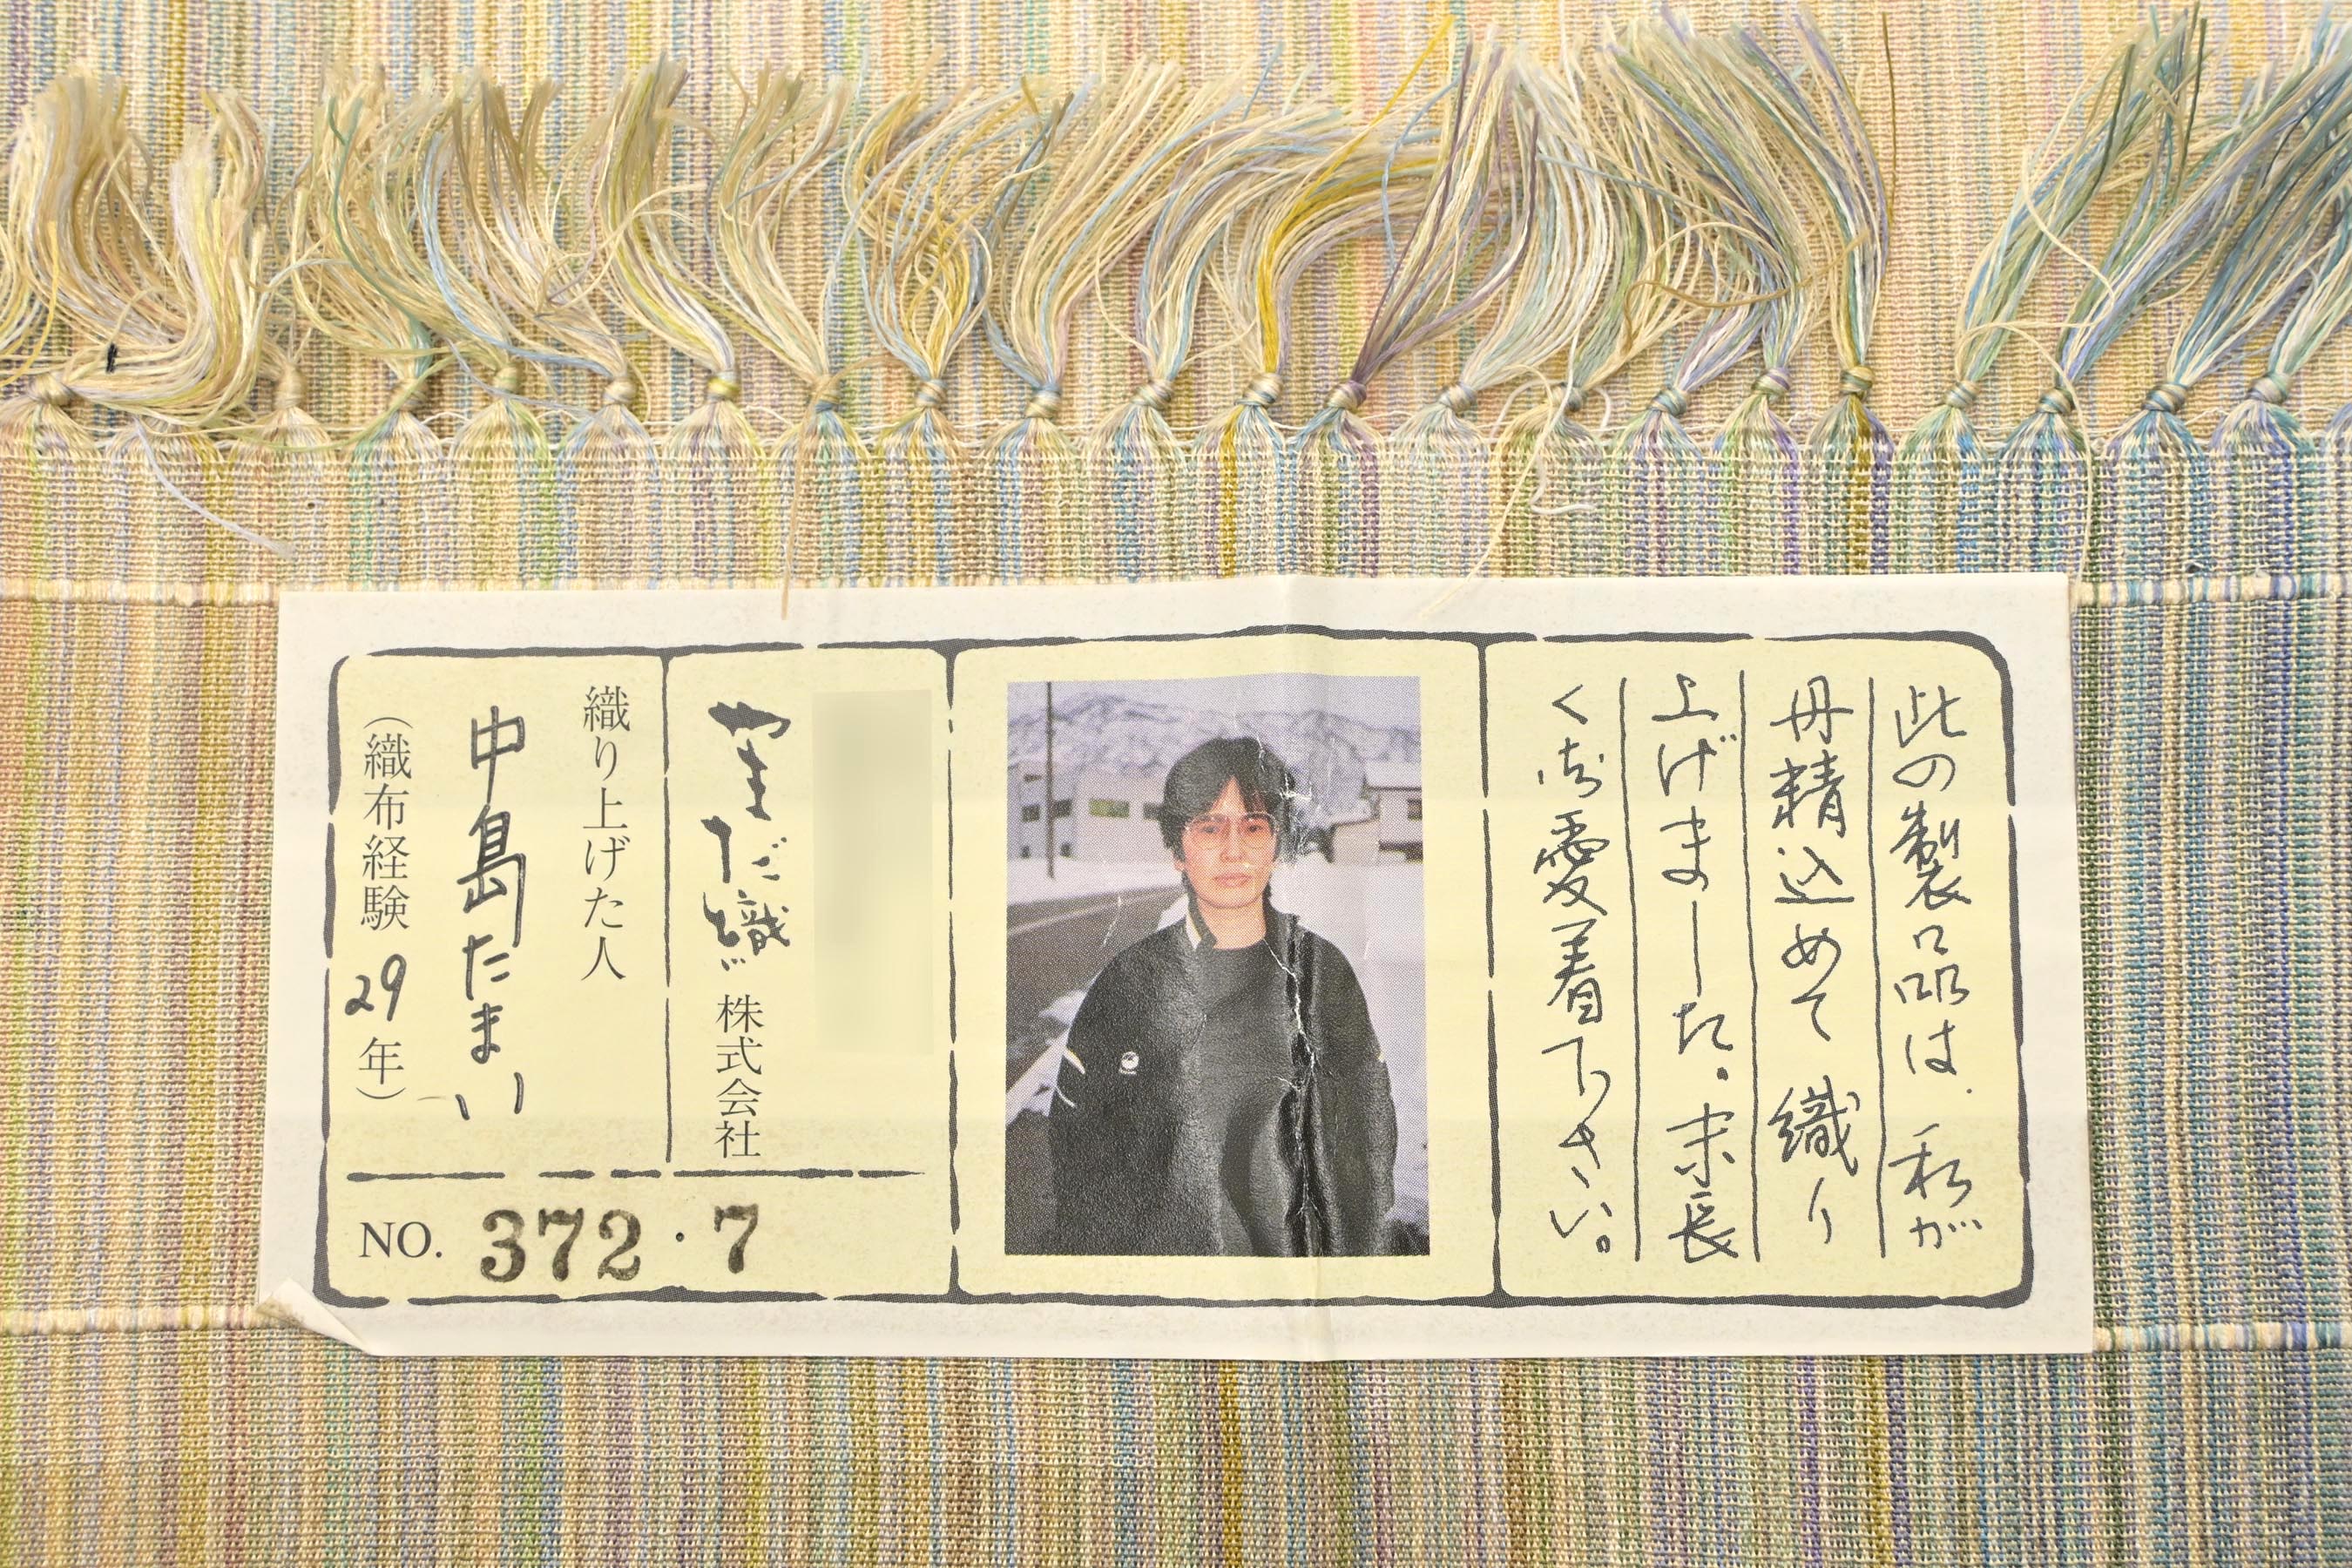 此の製品は、私が
丹精込めて織り
上げました。末長
く御愛着下さい。
やまだ織 株式会社
織り上げた人
中島たまい
（織布経験 29年）
NO. 372・7